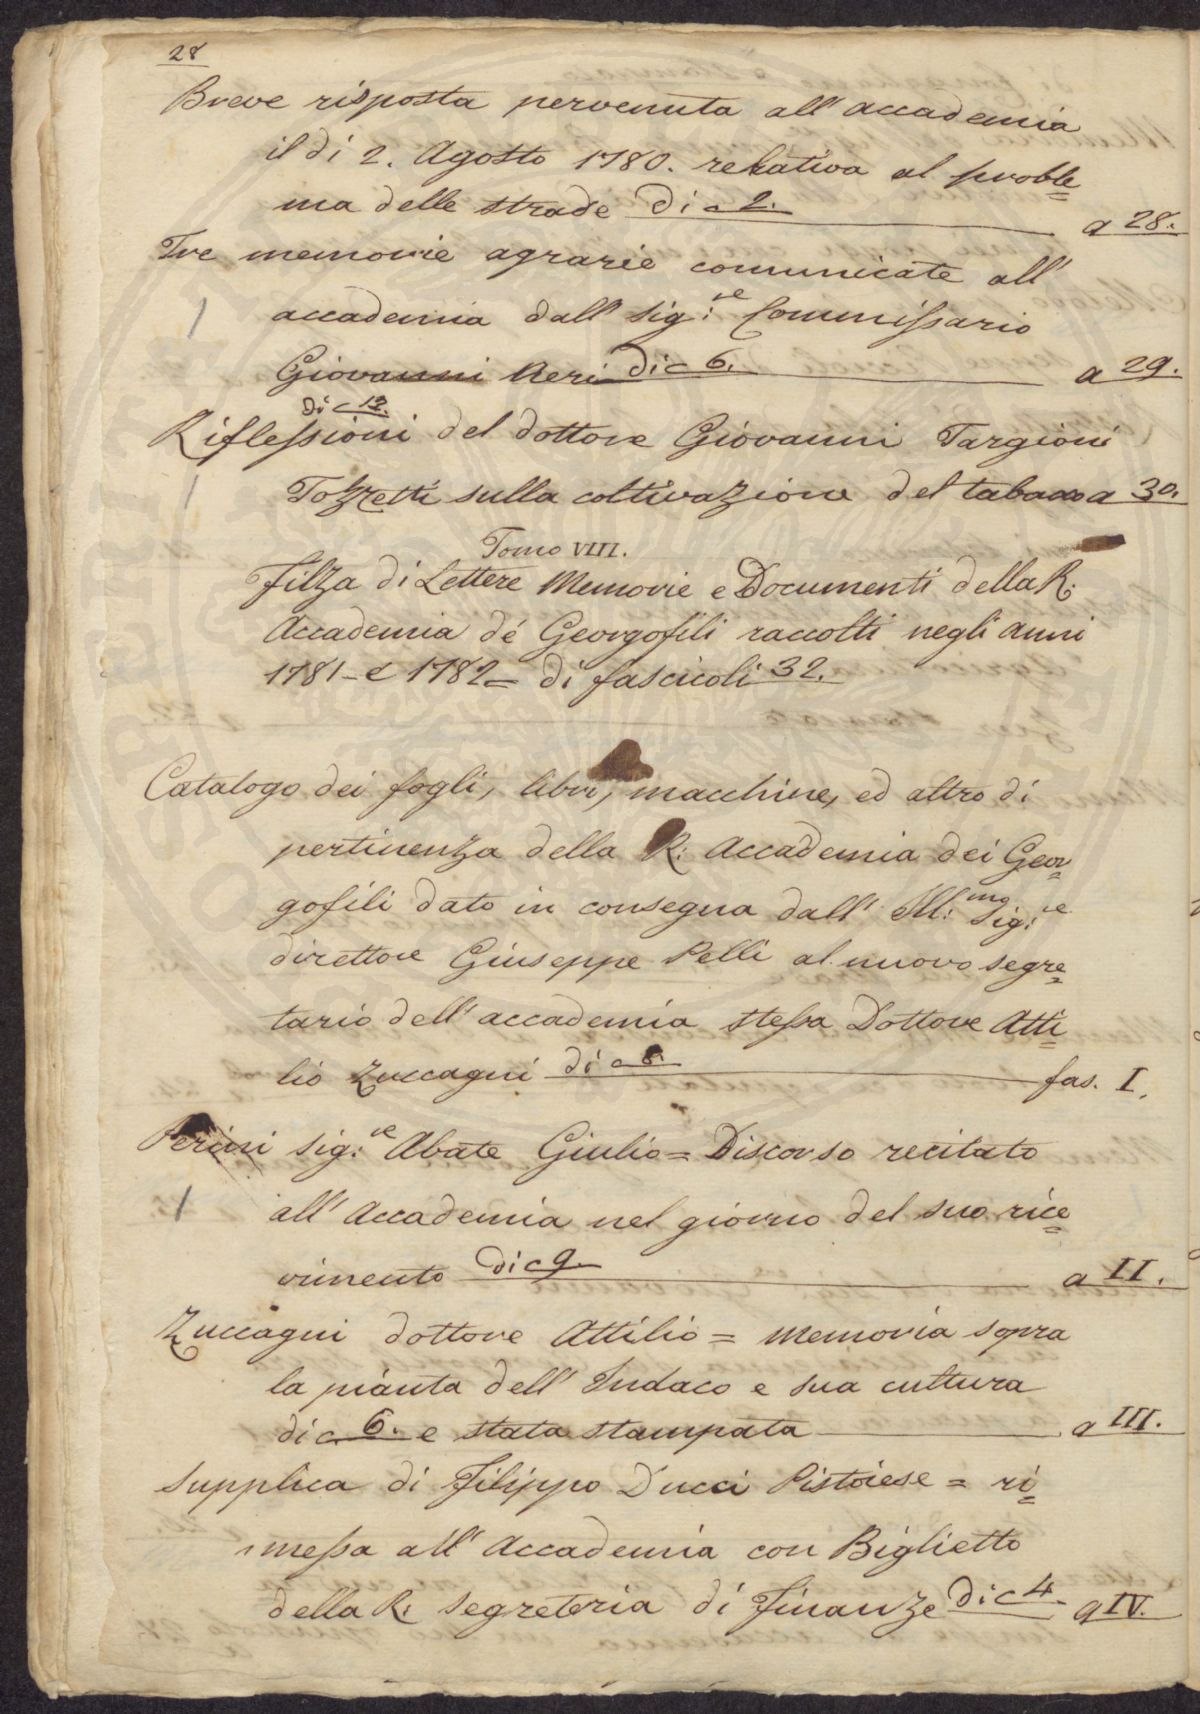 28
Breve risposta pervenuta all' accademia
il di 2. Agosto 1780. relativa al proble=
ma delle strade di c 2. a 28.
Tre memorie agrarie comunicate all'
accademia dall' Sig:re Commissario
Giovanni Neri di c 6. a 29.
di c 12.
Riflessioni del dottore Giovanni Targioni
Tozzetti sulla coltivazione del tabaco a 30.
Tomo VIII.
Filza di Lettere Memorie e Documenti della R:
Accademia de' Georgofili raccolti negli anni
1781 - e 1782 = di fascicoli 32.
Catalogo dei fogli, libri, macchine, ed altro di
pertinenza della R: Accademia dei Geor=
gofili dato in consegna dall' Ill:mo Sig:re
direttore Giuseppe Pelli al nuovo segre=
tario dell' accademia stessa Dottore Atti=
lio Zuccagni di c 8. fas. I.
Perini sig:re Abate Giulio = Discorso recitato
all' Accademia nel giorno del suo rice=
vimento di c 9. a II.
Zuccagni dottore Attilio = memoria sopra
la pianta dell' Indaco e sua cultura
di c. 6. e stata stampata a III.
Supplica di Filippo Ducci Pistoiese = ri=
messa all' Accademia con Biglietto
della R: Segreteria di Finanze di c 4. a IV.